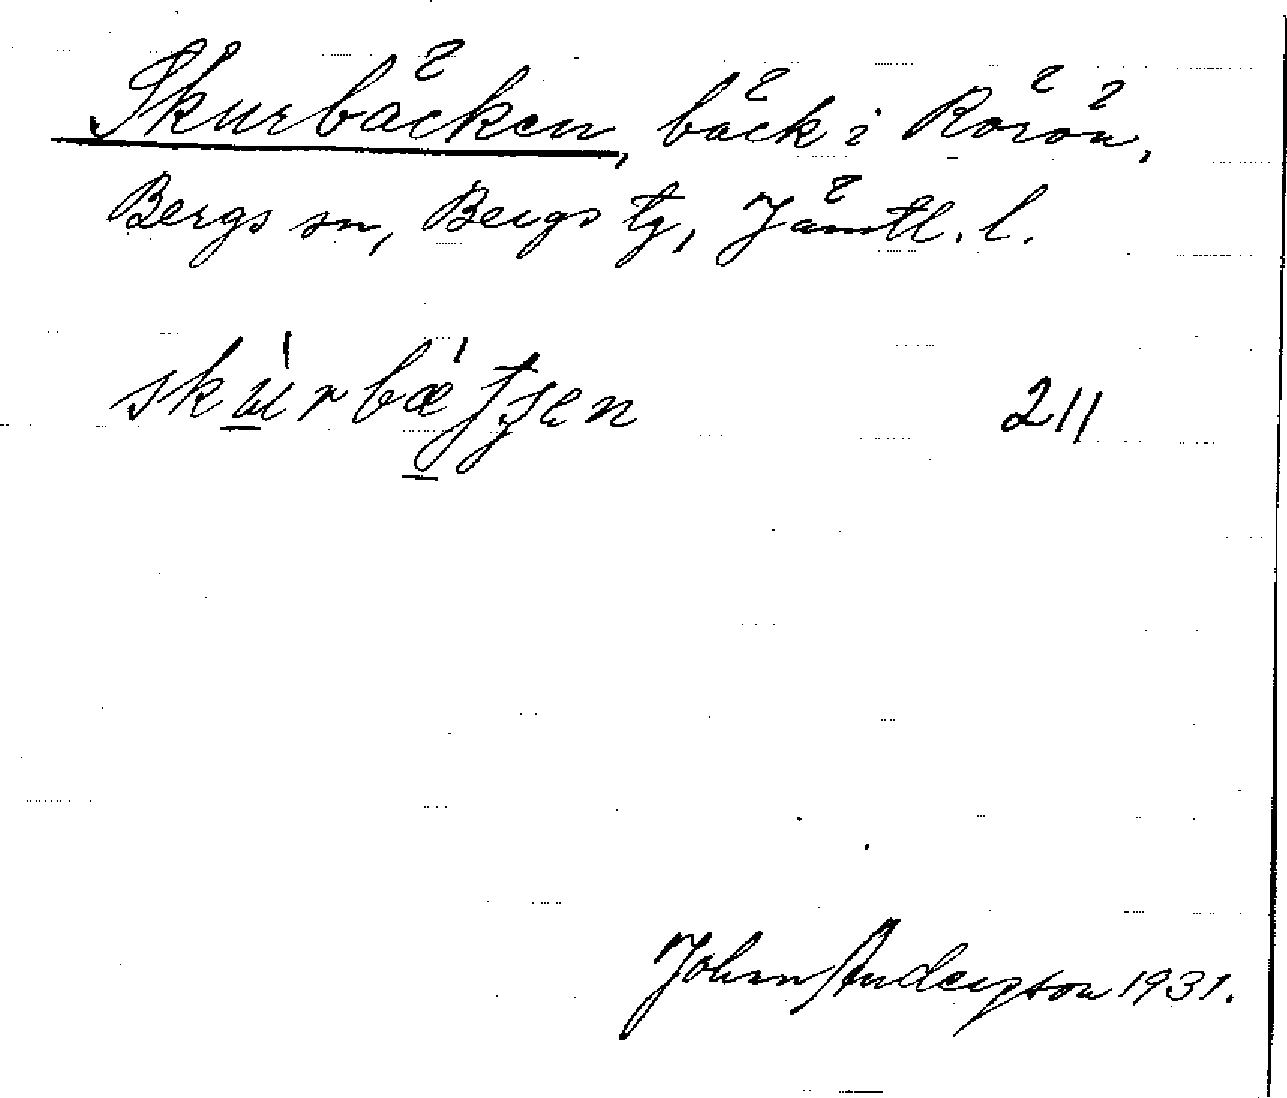 Skurbäcken, bäck i Rörön,
Bergs sn, Bergs tg, Jämtl. l.
211
John Andersson 1931.